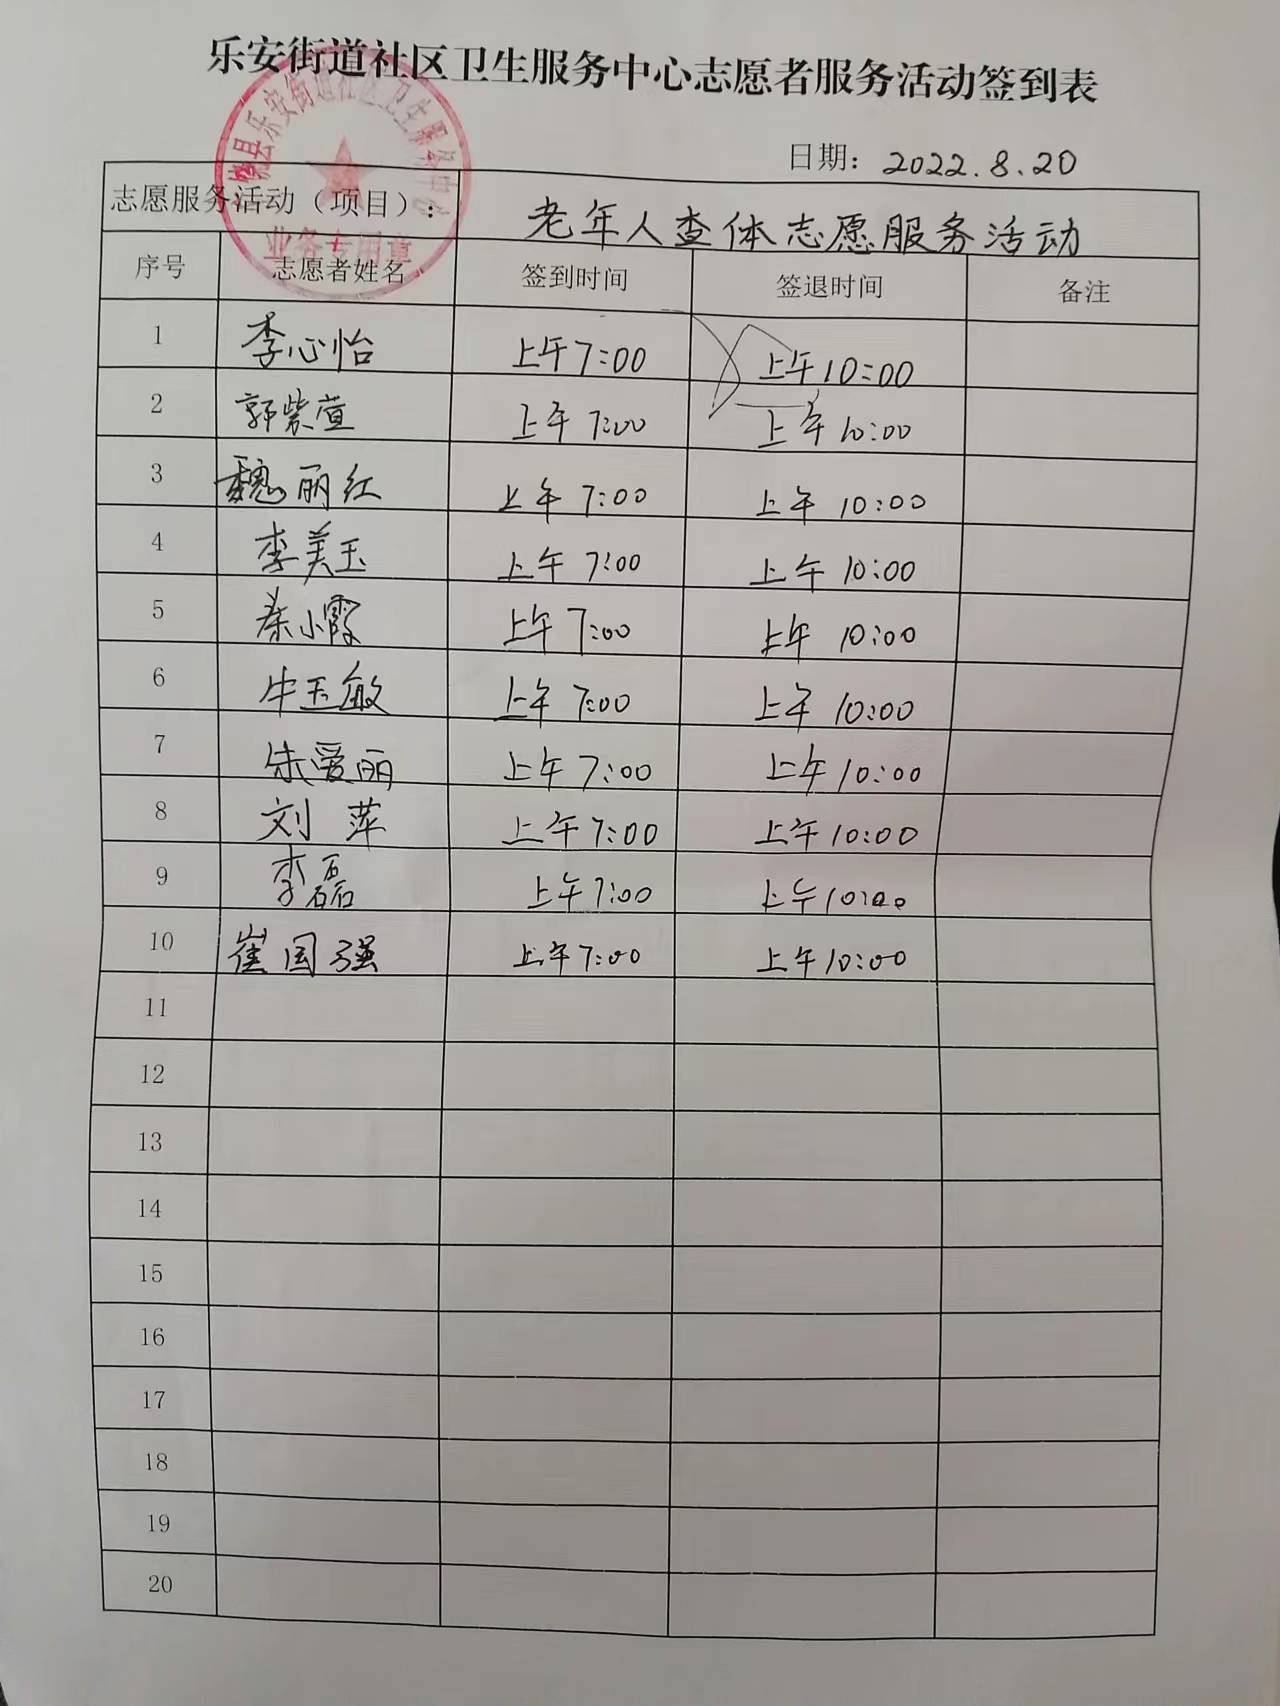 乐安街道社区卫生服务中心志愿者服务活动签到表
乐安街道社区卫生服务中心
业务专用章
日期：2022.8.20
志愿服务活动（项目）： 老年人查体志愿服务活动
序号 志愿者姓名 签到时间 签退时间 备注
1 李心怡 上午7:00 上午10:00
2 郭紫萱 上午7:00 上午10:00
3 魏丽红 上午7:00 上午10:00
4 李美玉 上午7:00 上午10:00
5 小霞 上午7:00 上午10:00
6 牛玉敏 上午7:00 上午10:00
7 朱爱丽 上午7:00 上午10:00
8 刘萍 上午7:00 上午10:00
9 李磊 上午7:00 上午10:00
10 崔国强 上午7:00 上午10:00
11
12
13
14
15
16
17
18
19
20